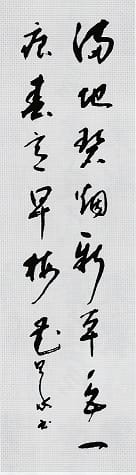 满地碧烟新草色一
痕春意早梅花
书